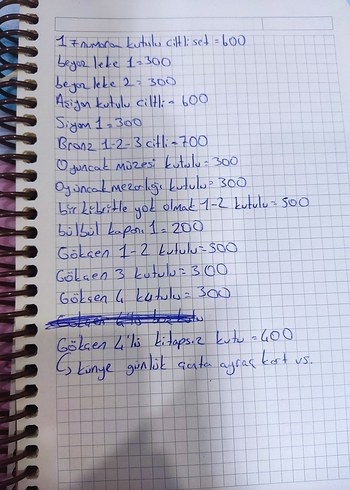 17 numara kutulu ciltli set = 600
beyaz leke 1 = 300
beyaz leke 2 = 300
Asiyan kutulu ciltli = 600
Siyam 1 = 300
Bronz 1-2-3 citli = 700
Oyuncak müzesi kutulu = 300
Oyuncak mezarlığı kutulu = 300
bir kibritle yok olmak 1-2 kutulu = 500
bülbül kapanı 1 = 200
Gökçen 1-2 kutulu = 500
Gökçen 3 kutulu = 300
Gökçen 4 kutulu = 300
Gökçen 4'lü kitapsız kutu = 400
↳ künye günlük çanta ayraç kart vs.